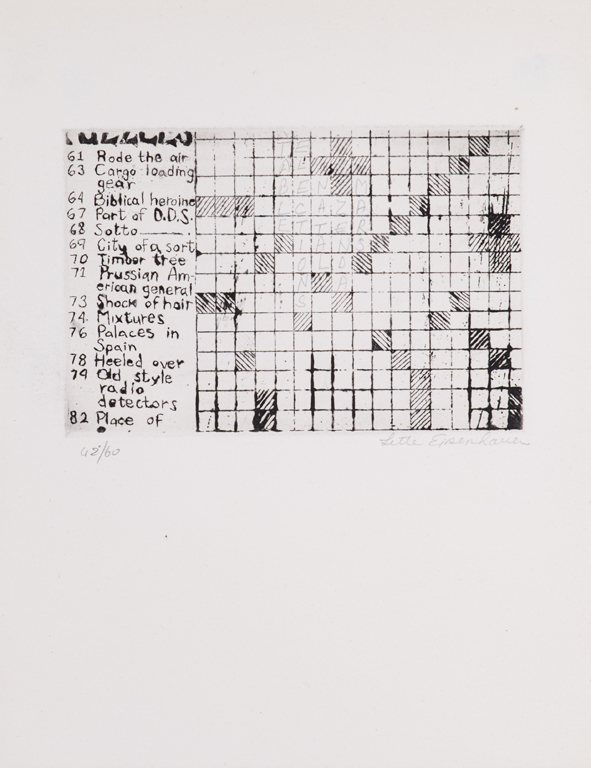 61 Rode the air
63 Cargo loading
gear
64 Biblical heroine
67 Part of D.D.S.
68 Sotto
69 City of a sort
70 Timber tree
71 Prussian Am-
erican general
73 Shock of hair
74 Mixtures
76 Palaces in
Spain
78 Heeled over
79 Old style
radio
detectors
82 Place of
T E
A L
B E N M
L C A Z A
E T T E R
I A N S
O L D
N A
S
42/60 Lette Eisenhauer